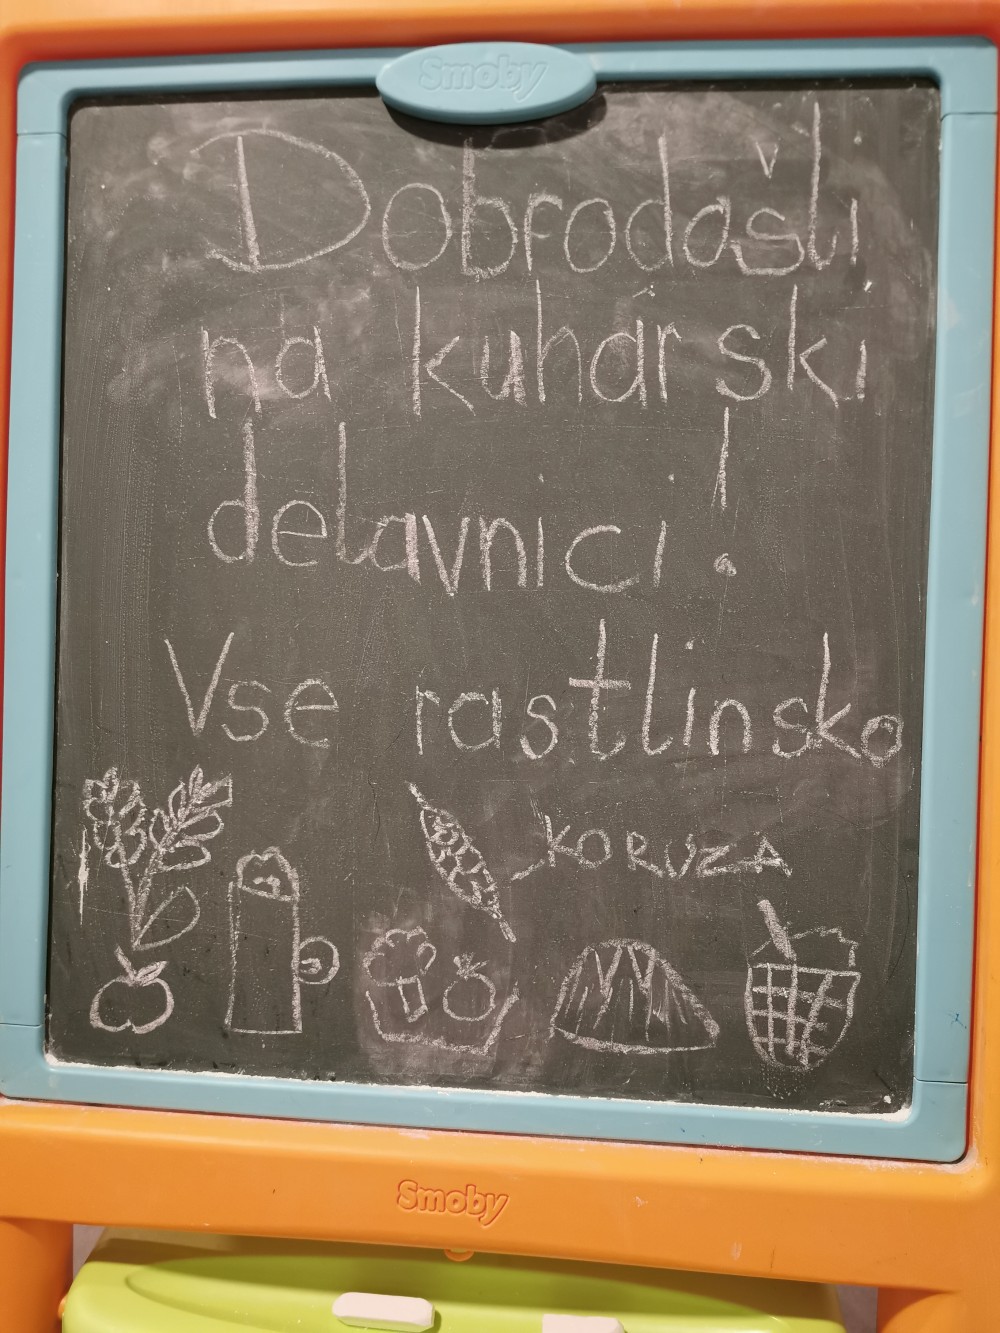 Smoby
Dobrodošli
na kuharski
delavnici!
Vse rastlinsko
KORUZA
Smoby